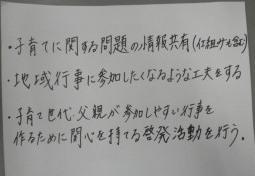 ・子育てに関する問題の情報共有(仕組みも含む)
・地域行事に参加したくなるような工夫をする
・子育て世代、父親が参加しやすい行事を
作るために関心を持てる啓発活動を行う。